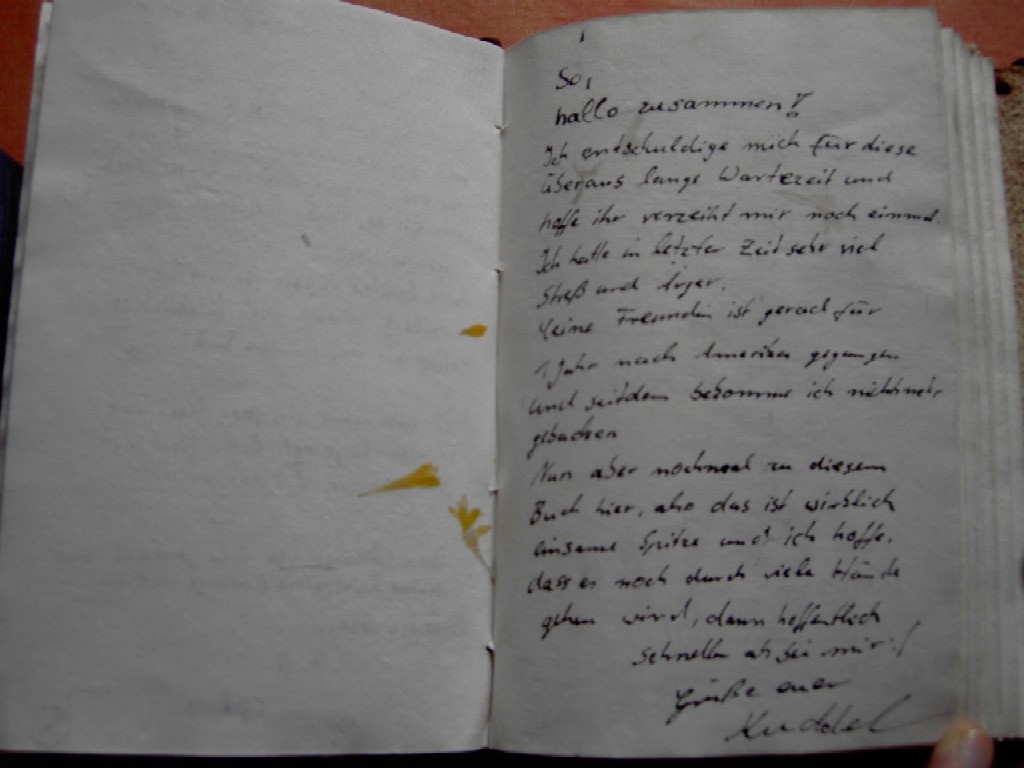 So,
hallo zusammen!
Ich entschuldige mich für diese
überaus lange Wartezeit und
hoffe ihr verzeiht mir noch einmal.
Ich hatte in letzter Zeit sehr viel
Streß und Ärger.
Meine Freundin ist gerad für
1 Jahr nach Amerika gegangen
und seitdem bekomme ich nichtmehr
gebacken
Nun aber nochmal zu diesem
Buch hier, also das ist wirklich
einsame Spitze und ich hoffe,
dass es noch durch viele Hände
gehen wird, dann hoffentlich
schneller als bei mir :(
Grüße euer
Kuddel